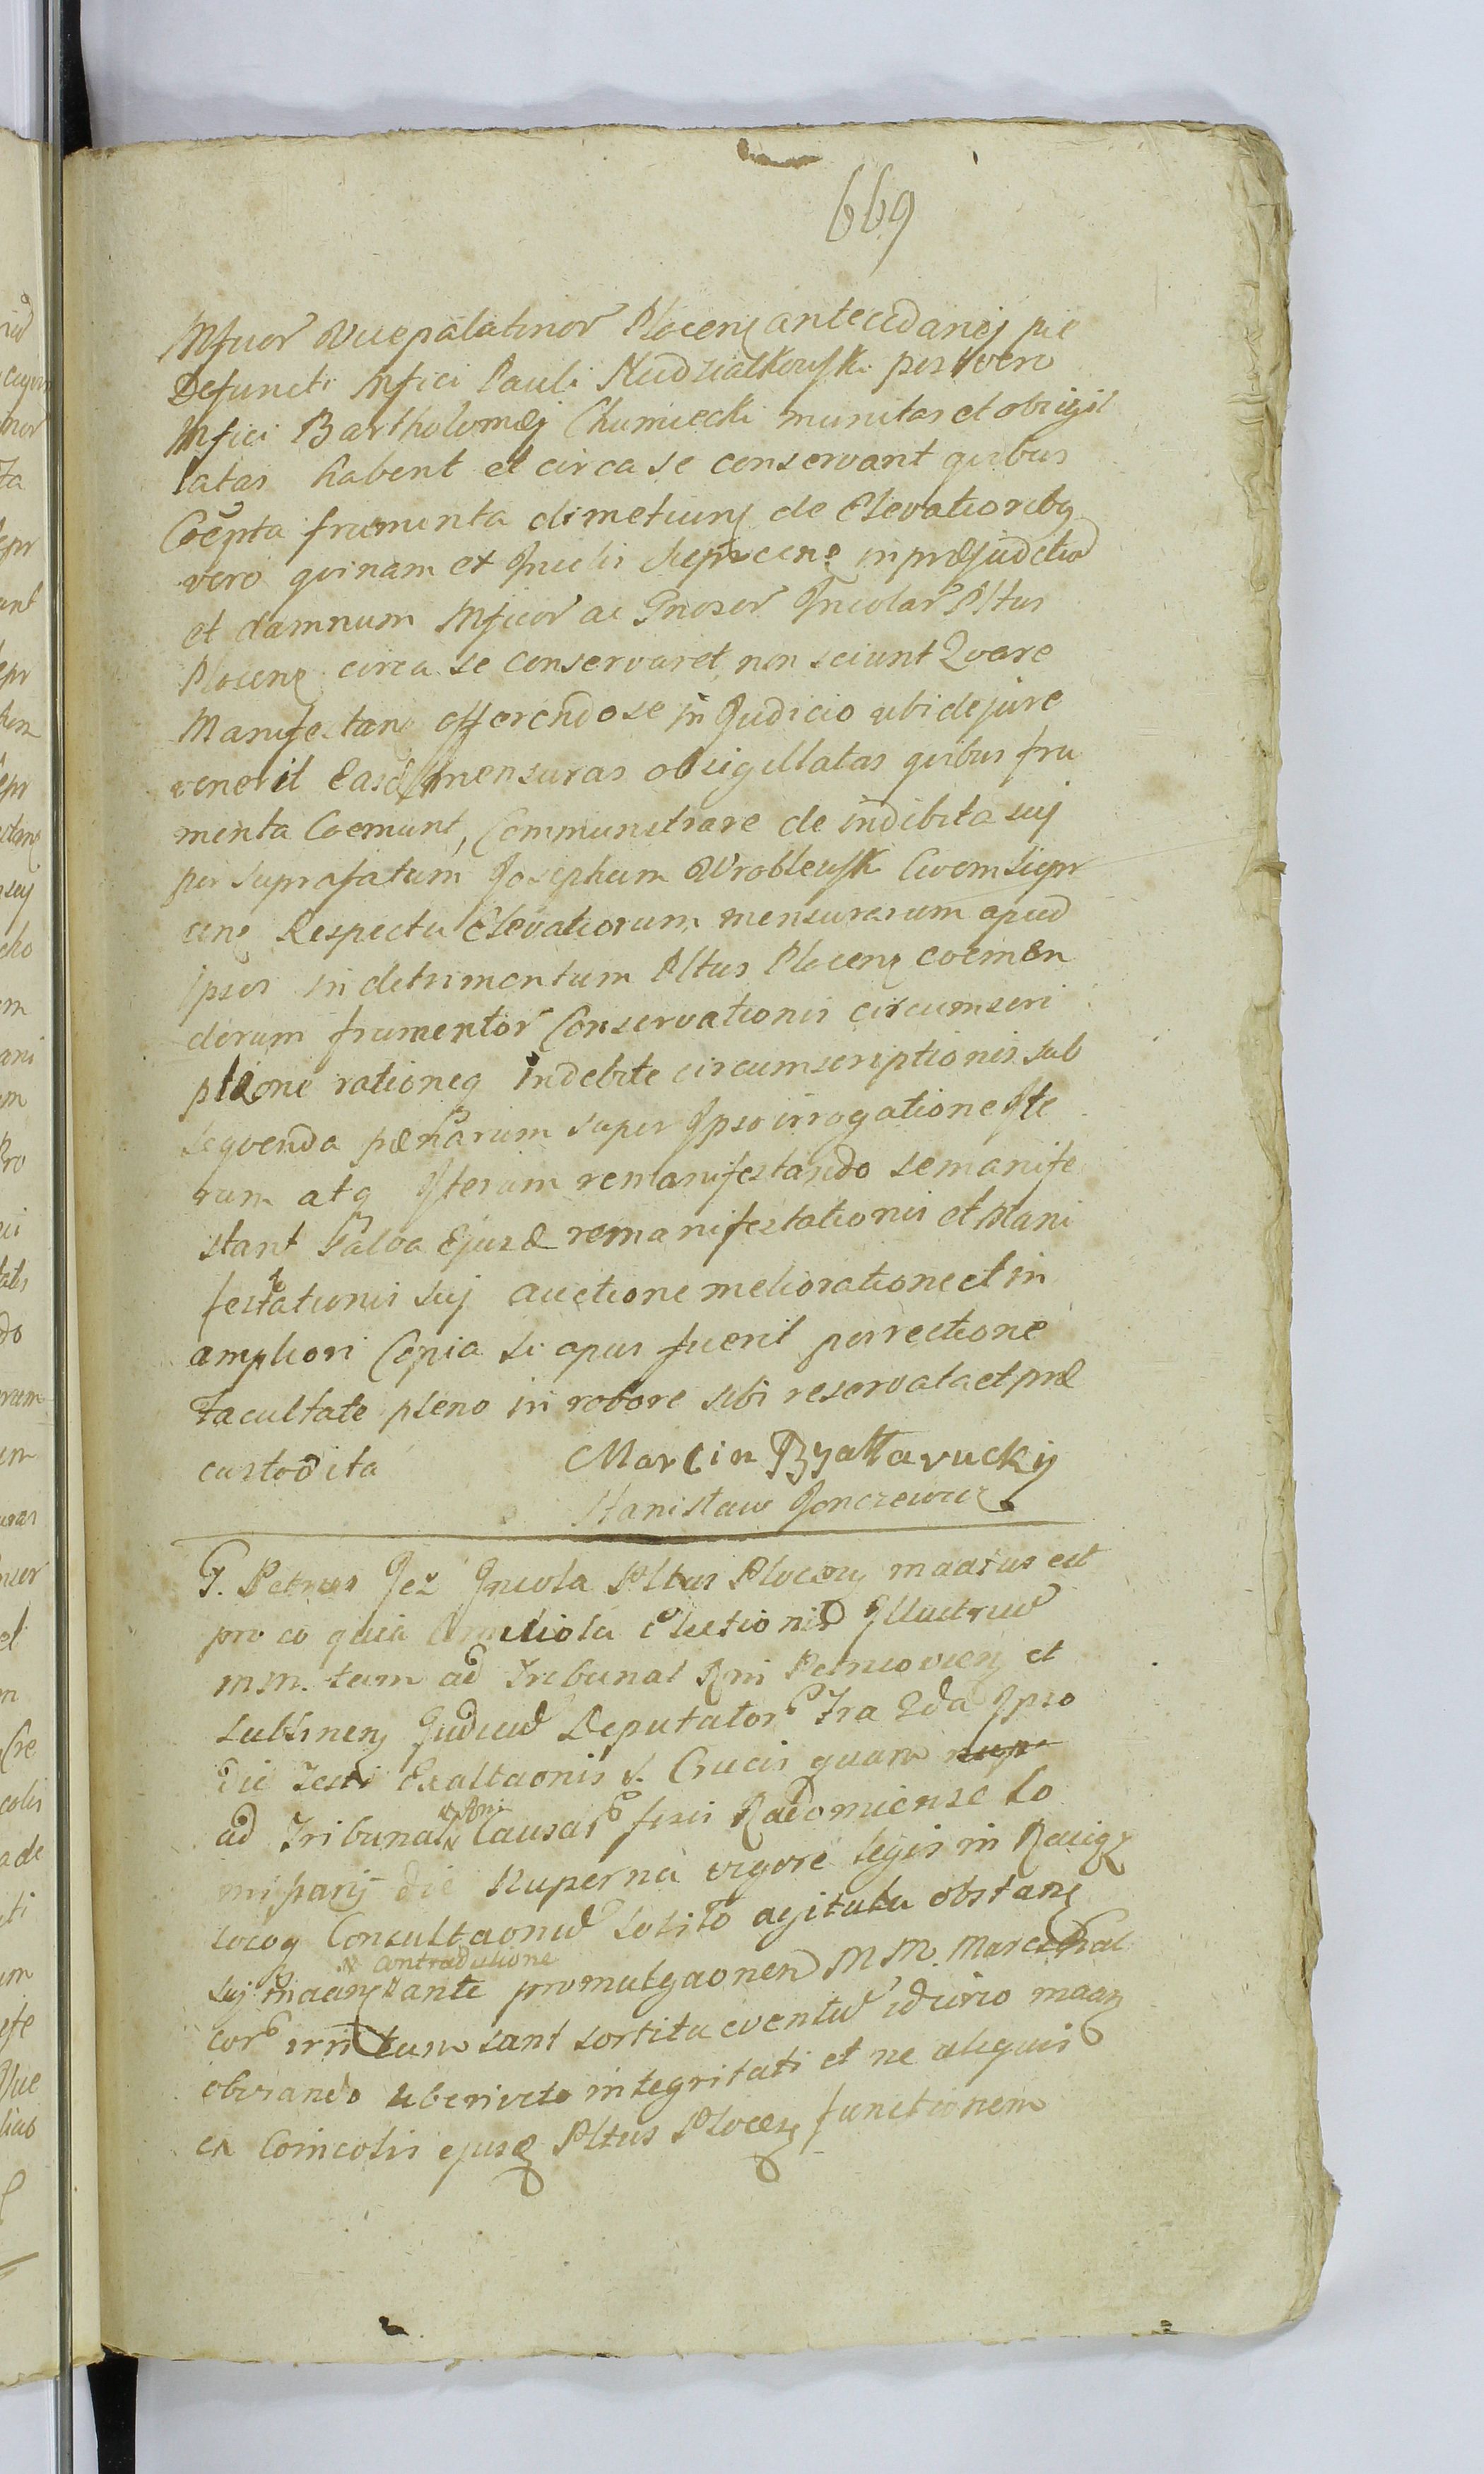 669
Mficor Vicepalatinor Plocen antecedanej pie
Defuncti Mfici Pauli Niedzialkowski post vero
Mfici Bartholomæj Chumiecki munitas et obsigil
latas habent et circa se conservant quibus
Coempta frumenta dimetiunt de Elevatioribq
vero quinam ex Incolis Sieprcens in præjudiciu
et damnum Mficor ac Gnosor Incolar Pltus
Plocens circa se conservaret, non sciunt Quare
Manifestans offerendo se in Judicio ubi de jure
venerit Easd mensuras obsigillatas quibus fru
menta Coemunt, Communstrare de indibita sui
per suprafatum Josephum Wroblewski Civem Siepr
cens Respectu Elevatiorum mensurarum apud
Ipsos in detrimentum Pltus Plocens coemen
dorum frumentor Conservationis circumscri
ptione rationeq indebite circumscriptionis sub
sequenda pænarum super Ipso irrogatione Ite
rum atq Iterum remanifestando se manife
stant Salva Ejusd remanifestationis et Mani
festationis sui auctione melioratione et in
ampliori Copia si opus fuerit porrectione
facultate pleno in robore sibi reservata et præ
custodita
Marcin
Stanisław Jonczewicz
G. Petrus Jeż Incola Pltus Plocens maatus est
pro eo quia Comitiola Electionis Illustriu
MM. tum ad Tribunal Rni Petricovien et
Lublinens Judicu Deputator Fra 2da Ipso
die Festi Exaltaonis S. Crucis quam nupr
ad Tribunal Rni Causar fisci Radomiense Co
missarij die Nuperna vigore legis in Raciąż
locoq Consultaonu solito agitata obstans
sui maans contradictione ante promulgaonen MM. Marechal
cor irritum sant sortita eventu idcirco maans
obviando liberivete integritati et ne aliquis
ex Coincolis ejusd Pltus Plocens functionem